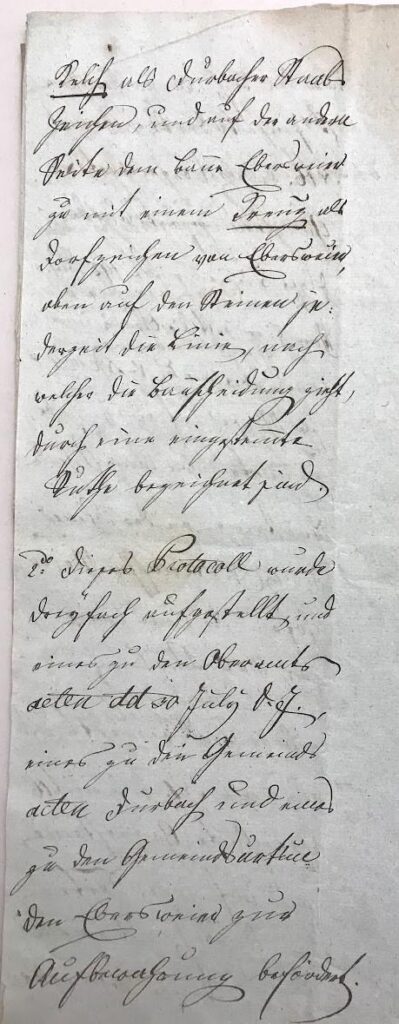 Kelch als Durbacher Staabs
Zeichen, und auf der andern
Seite dem Bann Ebersweier
zu mit einem Kreuz als
Dorfzeichen von Ebersweier,
oben auf den Steinen je-
derzeit die Linie, nach
welcher die Bannscheidung zieht,
durch eine eingestemmte
Ruthe bezeichnet sind.
2do Dieses Protocoll wurde
dreyfach aufgestellt und
eines zu den Oberamts
acten dd 30 July d. J.,
eines zu den Gemeinds
acten Durbach und eines
zu den Gemeindsurkun-
den Ebersweier zur
Aufbewahrung befördert.